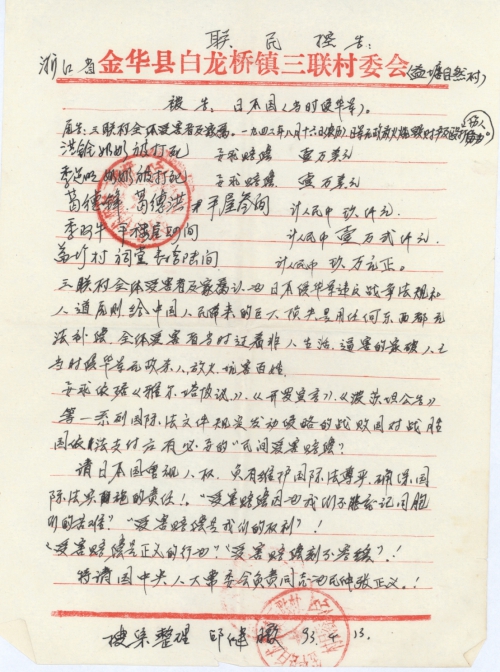 联民控告：
浙江省 金华县白龙桥镇三联村委会(盖塘自然村)
被告：日本国(当时侵华军)。
原告：三联村全体受害者及家属。一九四二年八月十六日
奶奶被打死 要求赔偿 壹万美元
奶奶被打死 要求赔偿 壹万美元
葛德 葛德洪 平屋叁间 计人民币 玖仟元
季 牛 平 屋四间 计人民币 壹万贰仟元
村 祠堂 陆间 计人民币 玖万元正。
三联村全体受害者及家属认 日本侵华军违反战争法规和
人道原则，给中国人民带来的巨大损失是用任何东西都无
法补偿，全体受害者当时过着非人生活，逼害的家破人亡
当时侵华军无故杀人，放火，坑害百姓。
要求依据《雅尔塔协议》，《开罗宣言》，《波茨坦公告》
等一系列国际法文件规定发动侵略的战败国对战胜
国依法支付应有必要的"民间受害赔偿"
请日本国重视人权，负有维护国际法尊严，确保国
际法实施的责任！"受害赔偿因为我们不能忘记同胞
们的苦难""受害赔偿是我们的权利"！
"受害赔偿是正义的行为""受害赔偿刻不容缓"！
特请国中央人大常委会负责同志为民伸张正义！
搜集整理 邱 93. 4. 13.